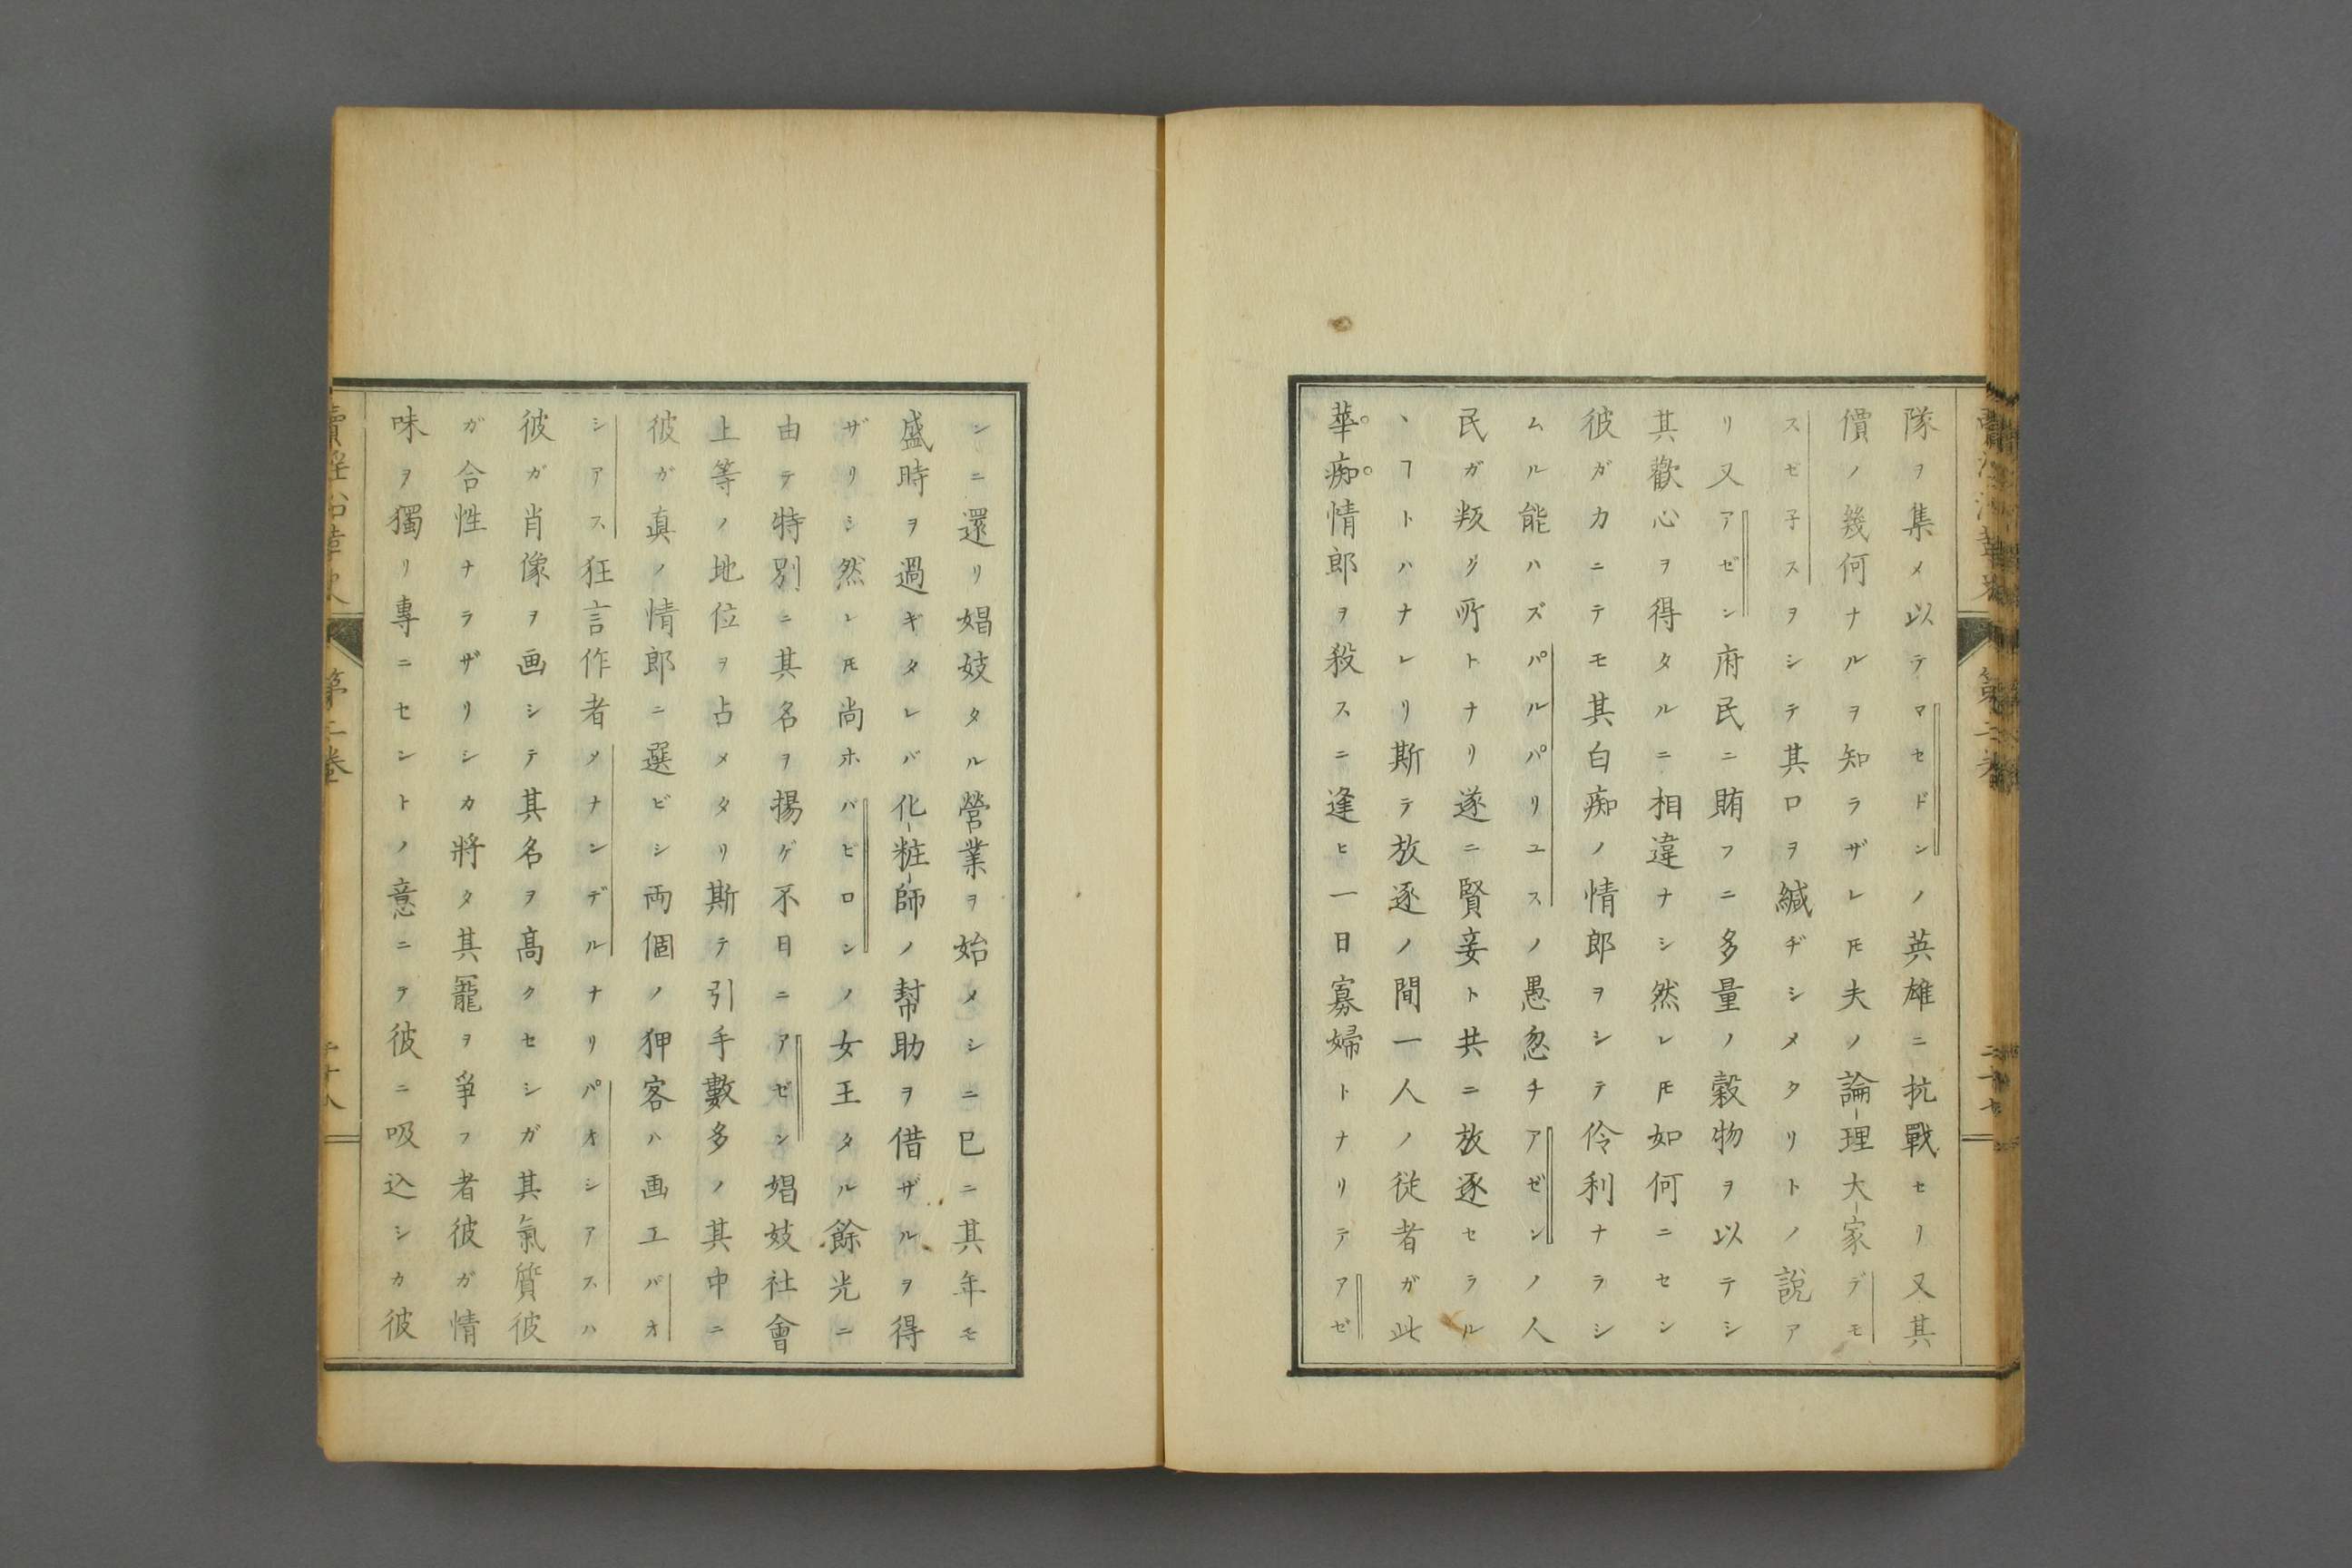 隊ヲ集メ以テマセドンノ英雄ニ抗戰セリ又其
價ノ幾何ナルヲ知ラザレ𪜈夫ノ論理大家デモ
スゼ子スヲシテ其口ヲ緘ヂシメタリトノ說ア
リ又アゼン府民ニ賄フニ多量ノ穀物ヲ以テシ
其歡心ヲ得タルニ相違ナシ然レ𪜈如何ニセン
彼ガカニテモ其白痴ノ情郎ヲシテ伶利ナラシ
ムル能ハズパルパリユスノ愚忽チアゼンノ人
民ガ叛グ所トナリ遂ニ賢妾ト共ニ放逐セラル
、ヿトハナレリ斯テ放逐ノ間一人ノ從者ガ此
華痴情郎ヲ殺スニ逢ヒ一日寡婦トナリテアゼ
ンニ還リ娼妓タル營業ヲ始メシニ已ニ其年モ
盛時ヲ過ギタレバ化粧師ノ幇助ヲ借ザルヲ得
ザリシ然レ𪜈尚ホバビロンノ女王タル餘光ニ
由テ特別ニ其名ヲ揚ゲ不日ニアゼン娼妓社會
上等ノ地位ヲ占メタリ斯テ引手數多ノ其中ニ
彼ガ真ノ情郎ニ選ビシ両個ノ狎客ハ画工パオ
シアス狂言作者メナンデルナリパオシアスハ
彼ガ肖像ヲ画シテ其名ヲ高クセシガ其氣質彼
ガ合性ナラザリシカ將タ其寵ヲ爭フ者彼ガ情
味ヲ獨リ專ニセントノ意ニテ彼ニ吸込シカ彼
第二卷